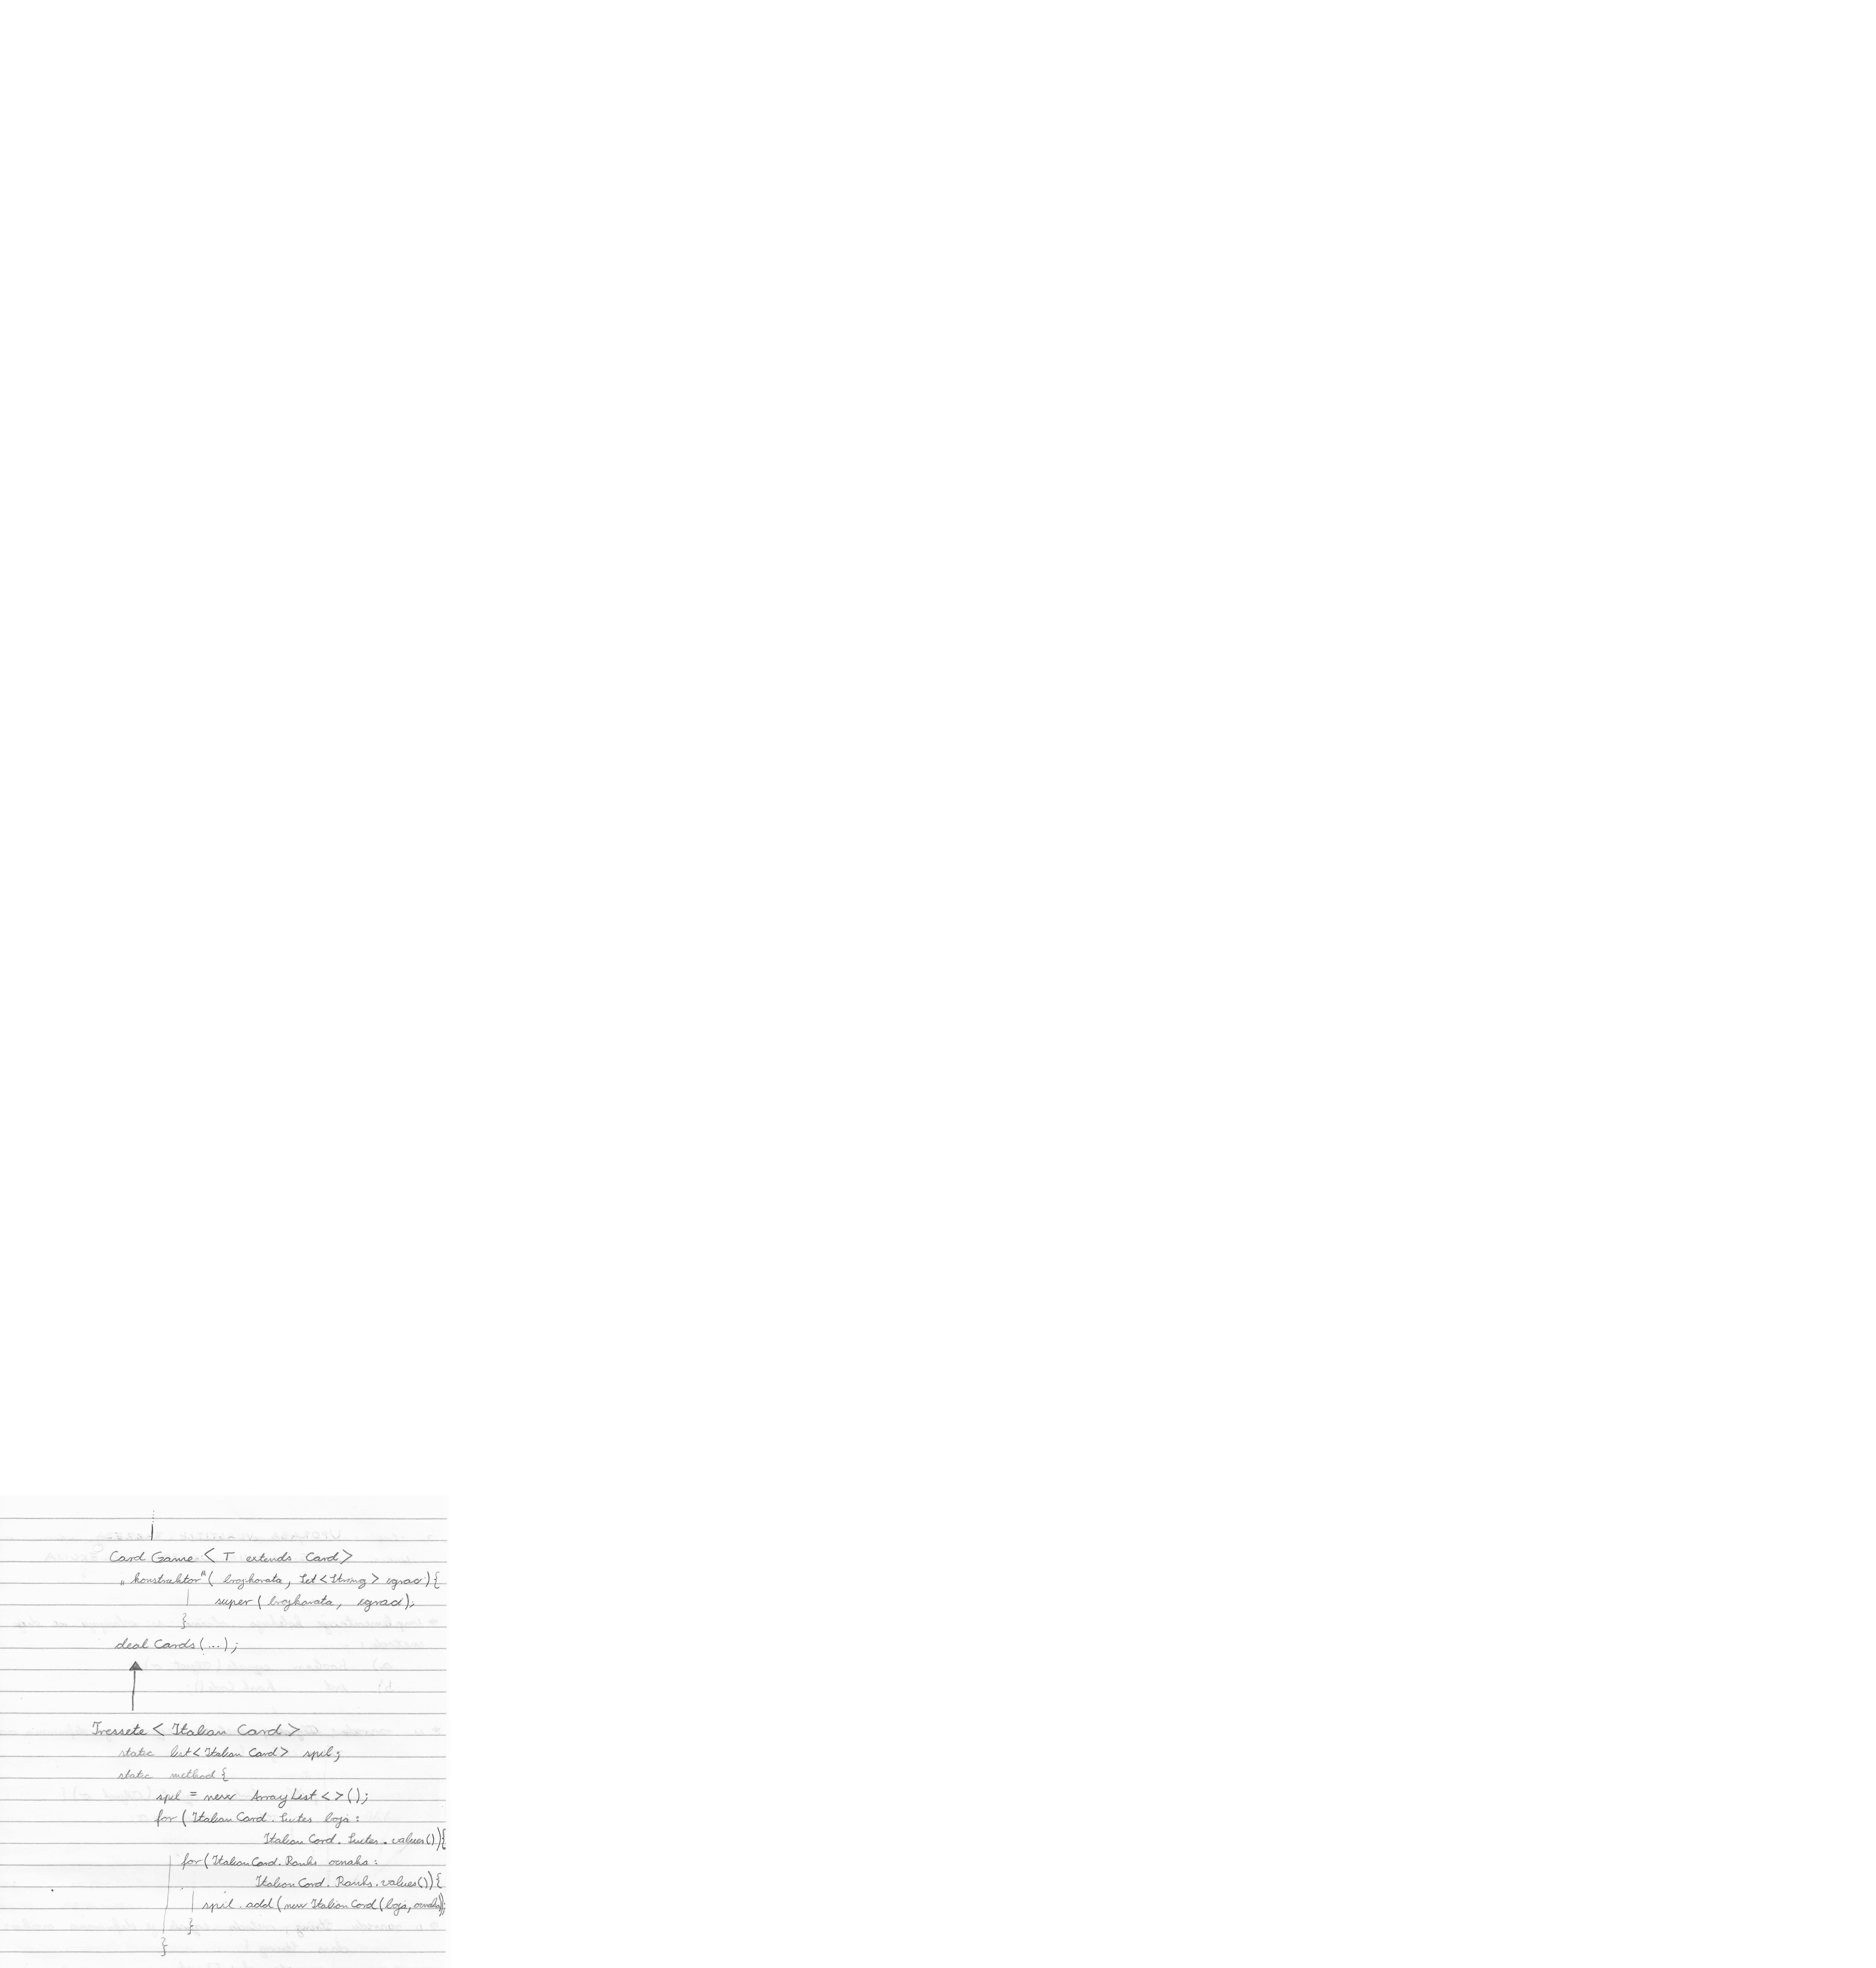 Card Game < T extends Card>
„konstruktor"( brojkarata, Set<String> igraci){
super( brojkarata, igraci);
}
deal Cards(...);
Tressete < Italian Card>
static list<Italian Card> spil;
static method{
spil = new ArrayList<>();
for (ItalianCard. Suites boja:
Italian Card. Suites. values()){
for(ItalianCard. Ranks oznaka:
ItalianCard. Ranks. values()){
spil. add(new ItalianCard(boja, oznaka));
}
}